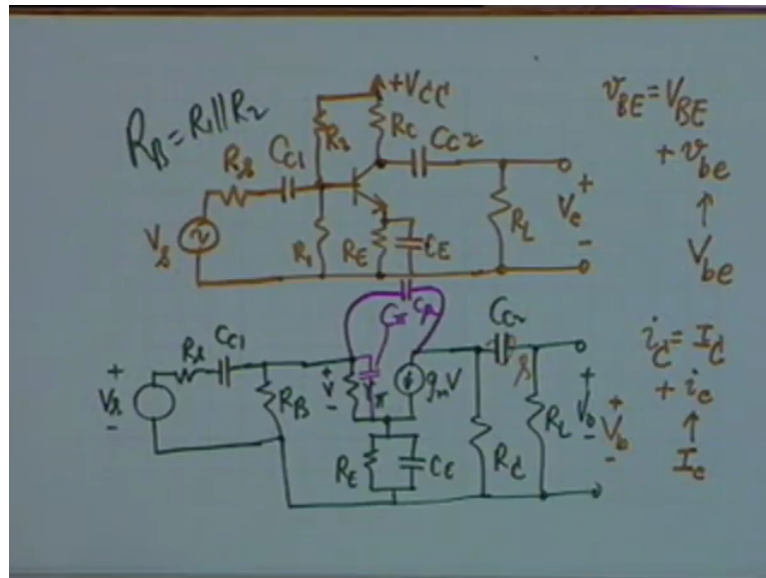 R_B = R_1 || R_2
+V_CC
R_2
R_C
C_C2
R_s
C_C1
V_s
R_1
R_E
C_E
R_L
+
V_o
-
v_BE = V_BE
+ v_be
↑
V_be
C_π
C_μ
+
V_s
-
R_s
C_C1
R_B
+
V
-
r_π
g_m V
R_E
C_E
C_C2
R_C
R_L
+
V_o
-
+
V_o
-
i_C = I_C
+ i_c
↑
I_c